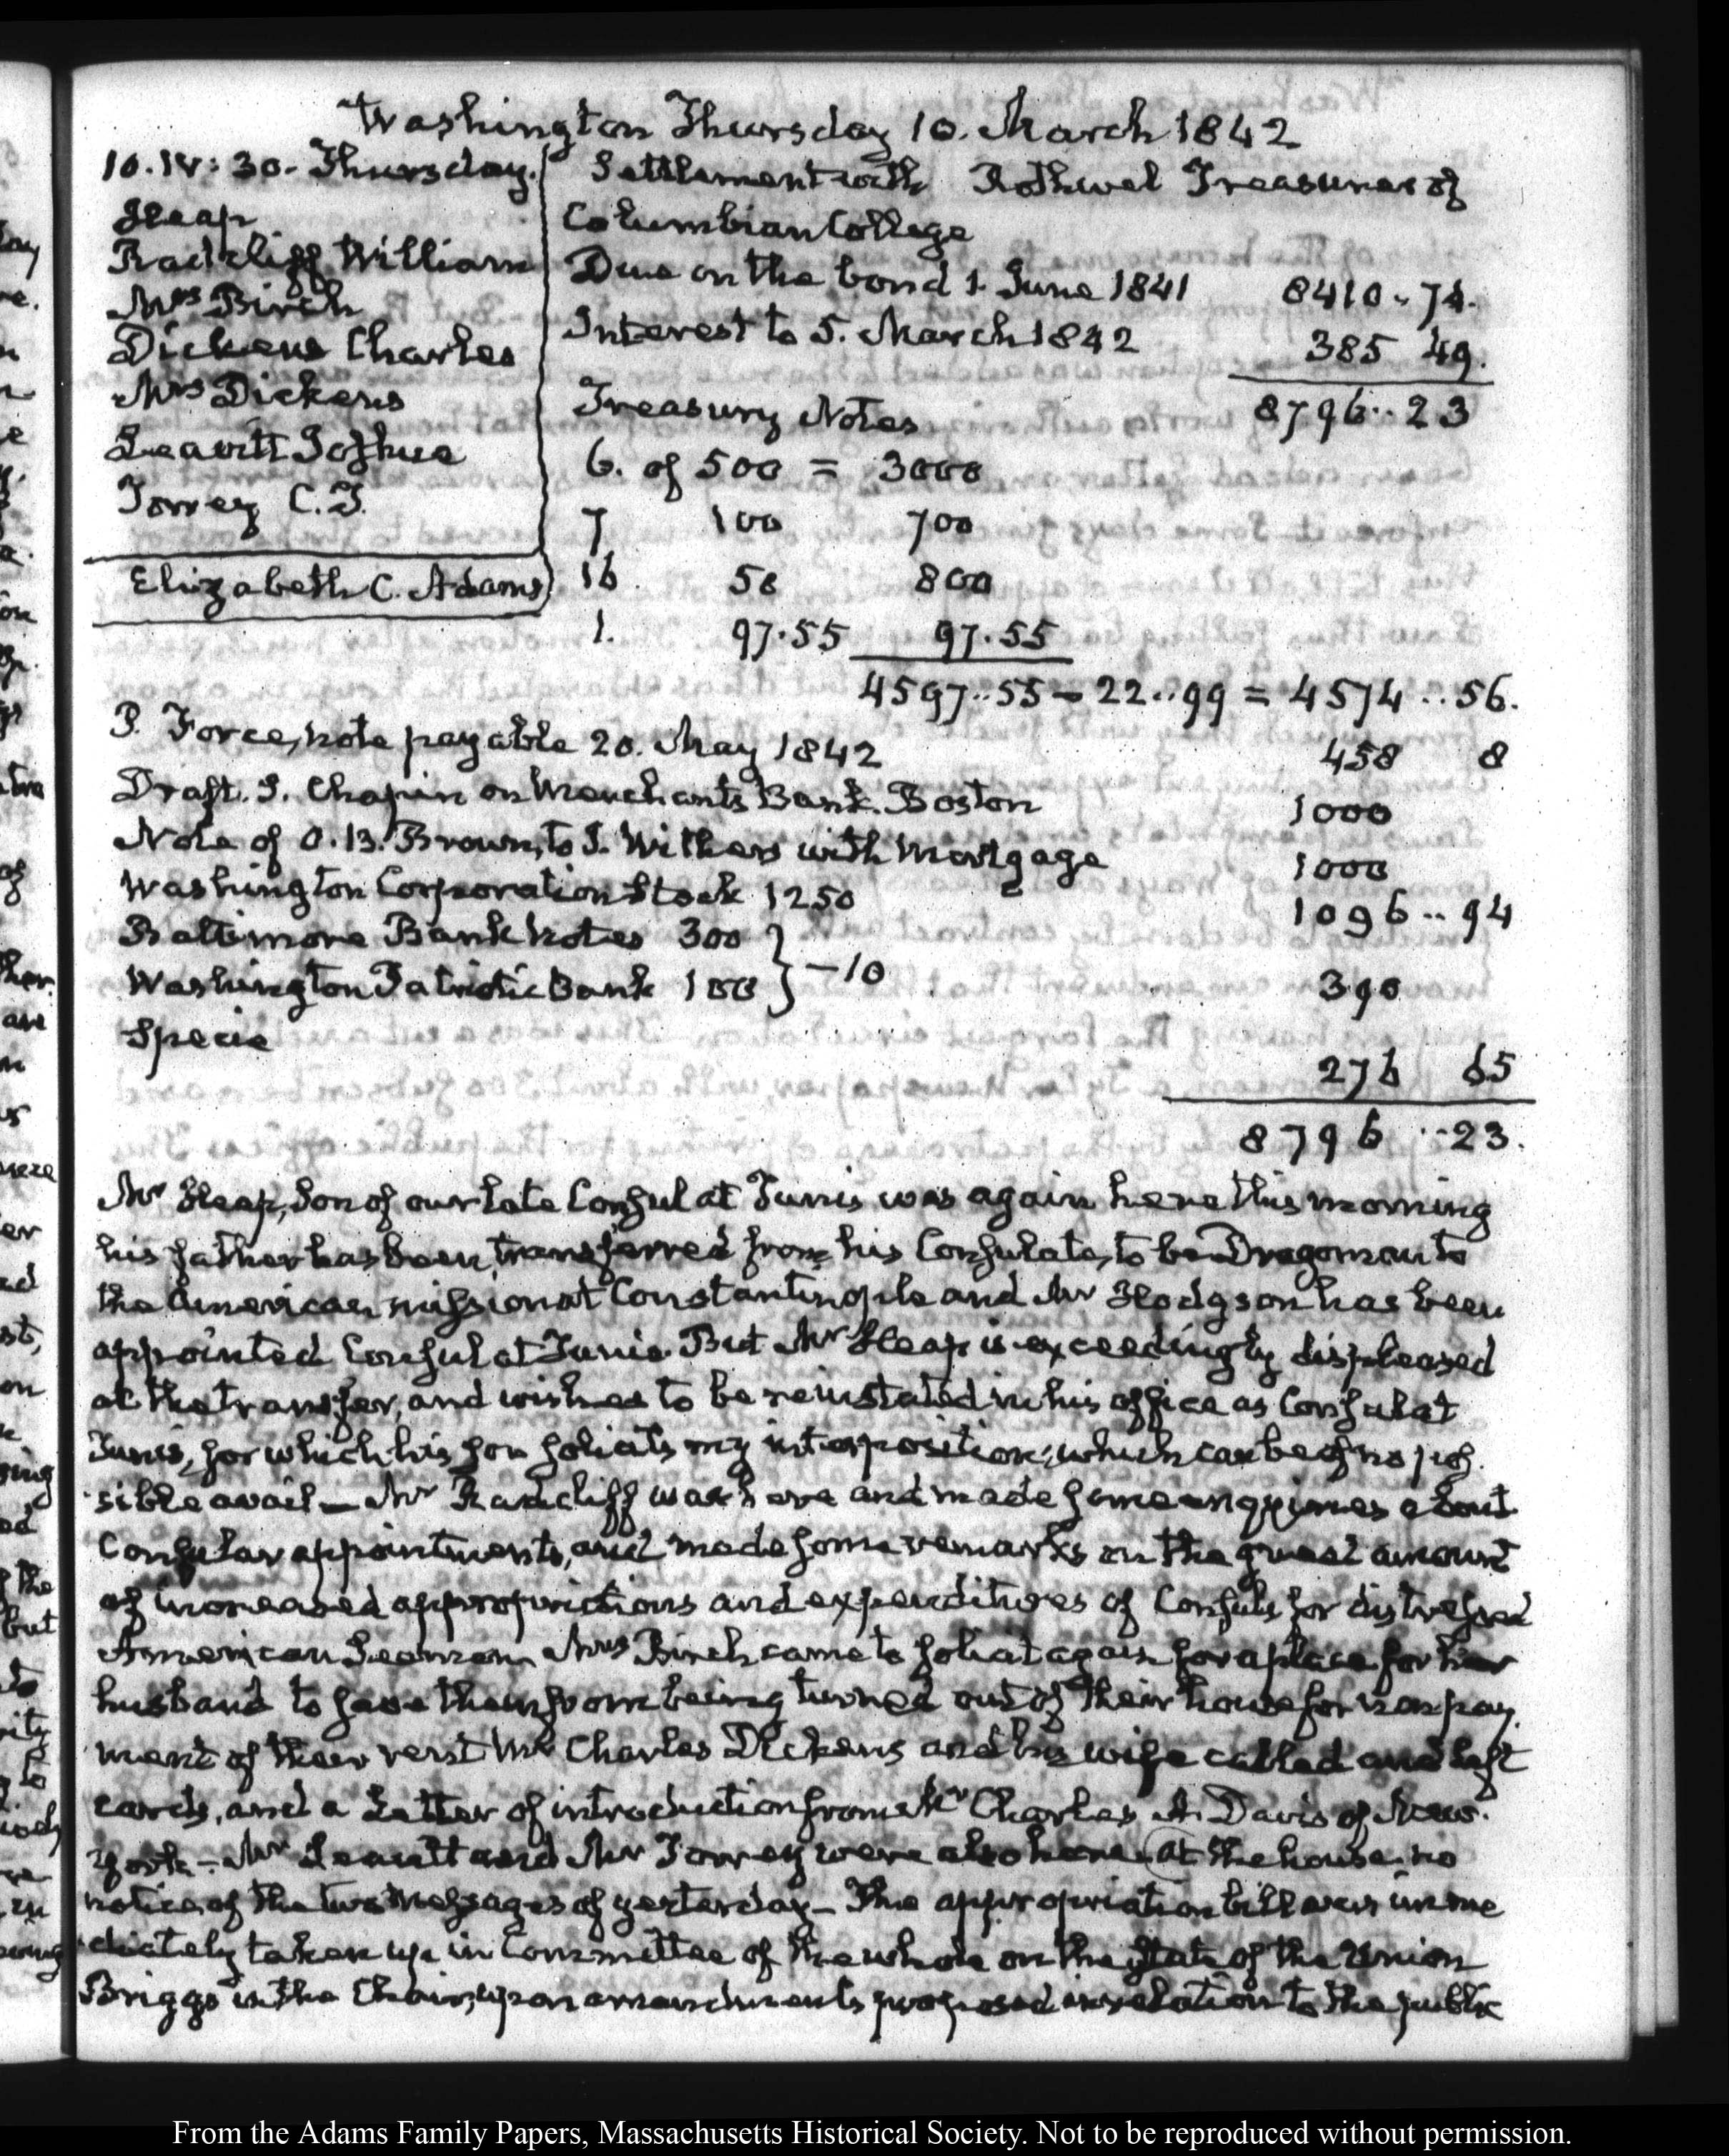 Washington Thursday 10. March 1842
10. IV: 30. Thursday.
Heap
Radcliff William
Mrs Birch
Dickens Charles
Mrs Dickens
Leavitt Joshua
Torrey C. T.
Elizabeth C. Adams
Settlement with Rothwel Treasurer of
Columbian College
Due on the bond 1. June 1841 8410.. 74.
Interest to 5. March 1842 385 49.
8796.. 23
Treasury Notes
6. of 500 = 3000
7 100 700
16 50 800
1. 97.55 97.55
4597..55 - 22..99 = 4574..56.
P. Force, note payable 20. May 1842 458 8
Draft. S. Chapin on Merchants Bank. Boston 1000
Note of O. B. Brown, to J. Withers with Mortgage 1000
Washington Corporation Stock 1250 1096..94
Baltimore Bank Notes 300 } -10
Washington Patriotic Bank 100 390
Specie 276 65
8796..23.
Mr Heap, Son of our late Consul at Tunis was again here this morning
his father has been transferred from his Consulate, to be Dragoman to
the American mission at Constantinople and Mr Hodgson has been
appointed Consul at Tunis. But Mr Heap is exceedingly displeased
at the transfer, and wishes to be reinstated in his office as Consul at
Tunis, for which his son solicits my interposition; which can be of no pos-
sible avail— Mr Radcliff was here and made some enquiries about
Consular appointments, and made some remarks on the great amount
of increased appropriations and expenditures of Consuls for distressed
American Seamen. Mrs Birch came to solicit again for a place for her
husband to save them from being turned out of their house for non pay-
ment of their rent. Mr Charles Dickens and his wife called and left
cards, and a Letter of introduction from Mr Charles A. Davis of New-
York— Mr Leavitt and Mr Torrey were also here. At the house, no
notice of the two Messages of yesterday— The appropriation bill was imme
diately taken up in Committee of the whole on the State of the Union
Briggs in the Chair, upon amendments proposed in relation to the public
From the Adams Family Papers, Massachusetts Historical Society. Not to be reproduced without permission.